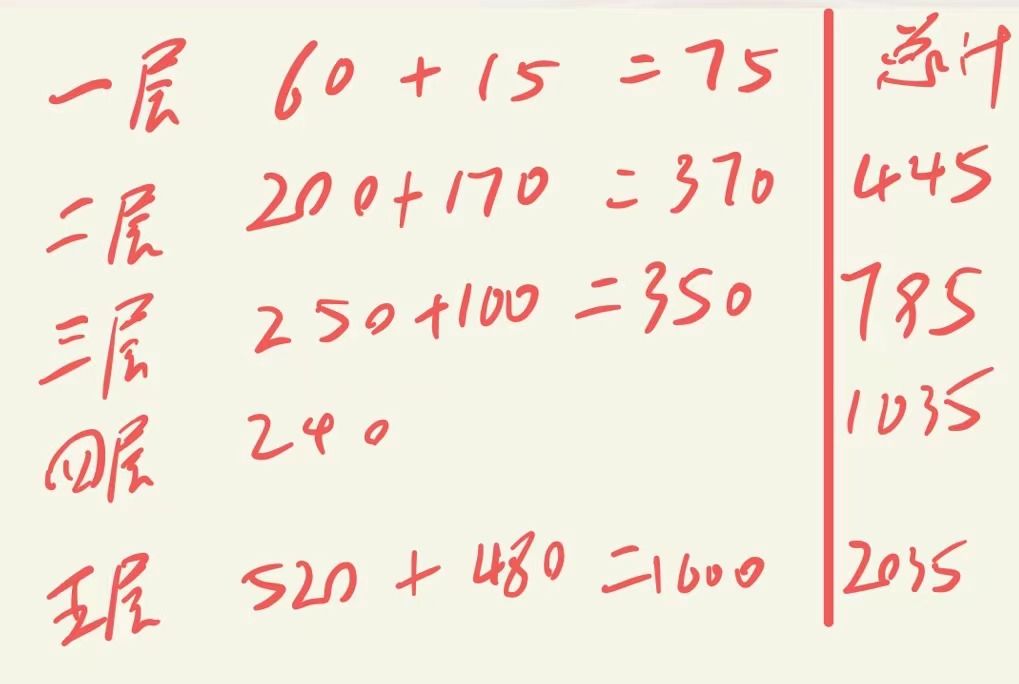 一层 60 + 15 = 75 总计
二层 200 + 170 = 370 445
三层 250 + 100 = 350 785
四层 240 1035
五层 520 + 480 = 1000 2035